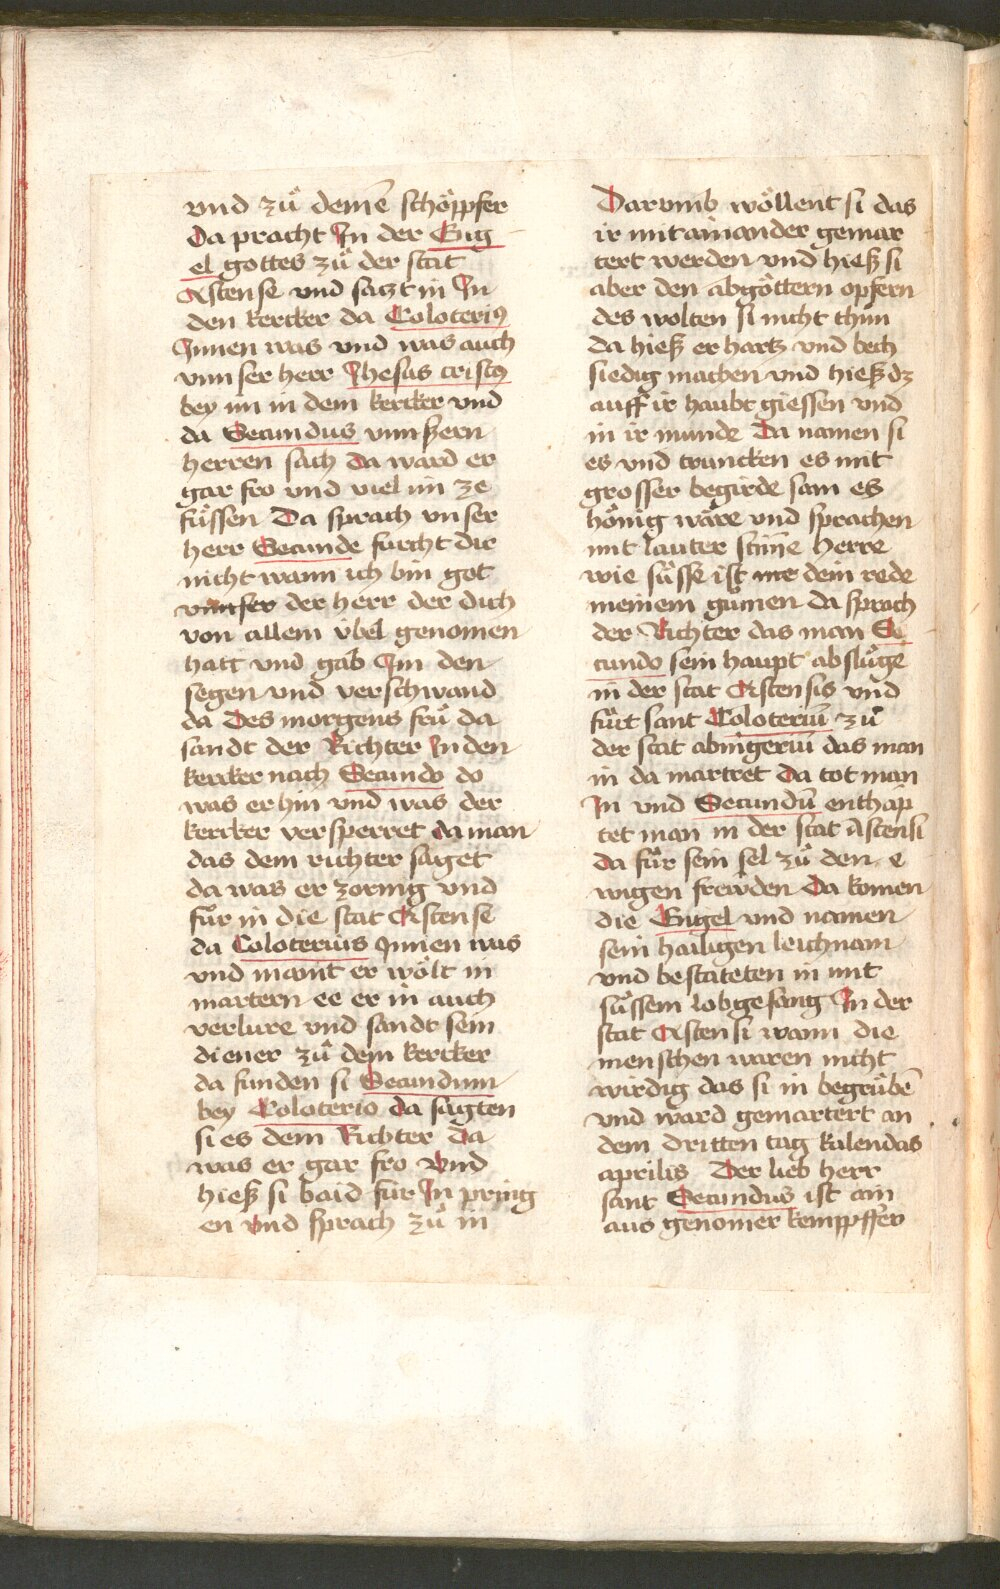 vnd zů deinē schöppfer
Da pracht Jn der Eng
el gottes zů der stat
Astense vnd satzt in Jn
den kercker da Coloterius
Jnnen was vnd was auch
vnnser herr Jhesus cristus
bey im in dem kercker vnd
da Secundus vnnsern
herren sach da ward er
gar fro vnd viel im ze
füssen Da sprach vnser
herr Secunde fürcht dir
nicht wann ich bin got
vnnser der herr der dich
von allem vbel genomen
hatt vnd gab Jm den
segen vnd verschwand
da Des morgens frů da
sandt der Richter Jn den
kercker nach Secundo do
was er hin vnd was der
kercker versperret da man
das dem richter saget
da was er zornig vnd
fůr in die stat Astense
da Coloterius Jnnen was
vnd maint er wölt in
martern ee er in auch
verlure vnd sandt sein
diener zů dem kercker
da funden si Secundum
bey Coloterio da sagten
si es dem Richter Da
was er gar fro Vnd
hieß si baid für Jn pring
en vnd sprach zů in
Darvmb wöllent si das
ir mit ainander gemar
tert werden vnd hieß si
aber den abgöttern opfern
des wolten si nicht thůn
da hieß er hartz vnd bech
siedig machen vnd hieß dz
auff ir haubt giessen vnd
in ir munde Da namen si
es vnd truncken es mit
grosser begirde sam es
hönig wäre vnd sprachen
mit lauter stim̄e Herre
wie süsse ist mr dein rede
meinem gumen da sprach
der Richter das man Se
cundo sein haupt abslůge
in der stat Astensis vnd
fůrt sant Coloteriū zů
der stat abingeriū das man
in da martret Da tot man
Jn vnd Secundū enthap
tet man in der stat Astensi
da fůr sein sel zů den e
wigen frewden Da komen
die Engel vnd namen
sein hailigen leichnam
vnd bestateten in mit
süssem lobgesang Jn der
stat Astensi wann die
menschen waren nicht
wirdig das si in begrůbē
vnd ward gemartert an
dem dritten tag kalendas
aprilis Der lieb herr
sant Secundus ist ain
aus genomer kemppffer